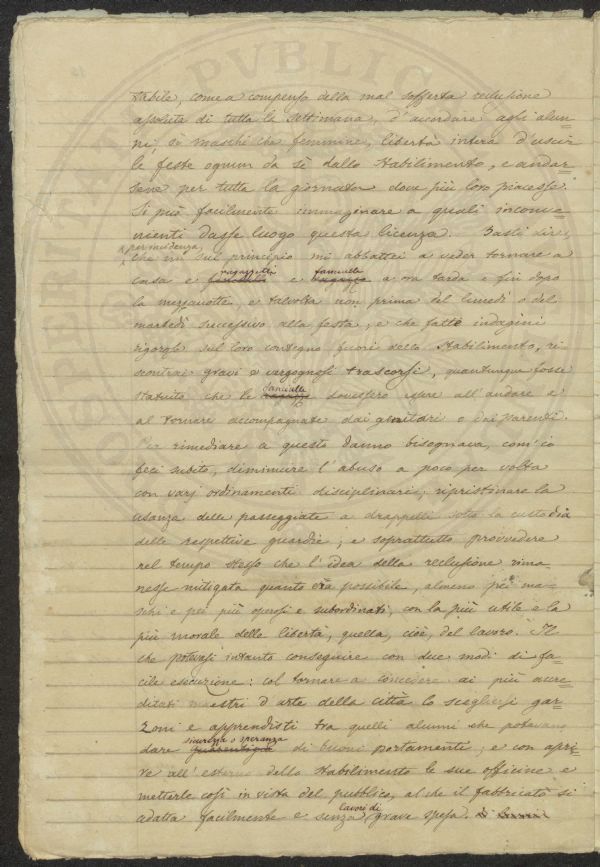 stabile, come a compenso della mal sofferta reclusione
assoluta di tutta la settimana, d'accordare agli alun=
ni, sì maschi che femmine, libertà intera d'uscir
le feste ognun da sè dallo stabilimento, e andar=
sene per tutta la giornata dove più loro piacesse.
Si può facilmente immaginare a quali inconve=
nienti dasse luogo questa licenza. Basti dire,
per incidenza,
che in sul principio mi abbattei a veder tornare a
ragazzetti fanciulle
casa e e ragazze a ora tarda e fin dopo
la mezzanotte, e talvolta non prima del lunedì o del
martedì successivo alla festa; e che fatte indagini
rigorose sul loro contegno fuori dello Stabilimento, ri
scontrai gravi e vergognosi trascorsi, quantunque fosse
fanciulle
statuito che le ragazze dovessero essere all'andare e
al tornare accompagnate dai genitori o dai parenti.
Per rimediare a questo danno bisognava, com'io
feci subito, diminuire l'abuso a poco per volta
con varj ordinamenti disciplinari; ripristinare la
usanza delle passeggiate a drappelli sotto la custodia
delle respettive guardie; e soprattutto provvedere
nel tempo stesso che l'idea della reclusione rima=
nesse mitigata quanto era possibile, almeno pei ma=
schi e pei più operosi e subordinati, con la più utile e la
più morale delle libertà, quella, cioè, del lavoro. Il
che potevasi intanto conseguire con due modi di fa=
cile esecuzione: col tornare a concedere ai più accre=
ditati maestri d'arte della città lo scegliersi gar=
zoni e apprendisti tra quelli alumni che potevano
sicurezza o speranza
dare guarentigia di buoni portamenti; e con apri=
re all'esterno dello Stabilimento le sue officine e
metterle così in vista del pubblico, al che il fabbricato si
lavori di
adatta facilmente e senza grave spesa.